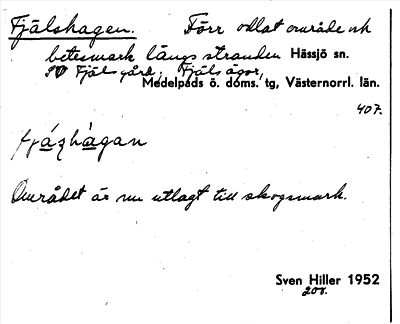 Fjälshagen. Förr odlat område och
betesmark längs stranden Hässjö sn.
SV Fjäls gård, Fjäls ägor,
Medelpads ö. doms. tg, Västernorrl. län.
407.
Området är nu utlagt till skogsmark.
Sven Hiller 1952
200.